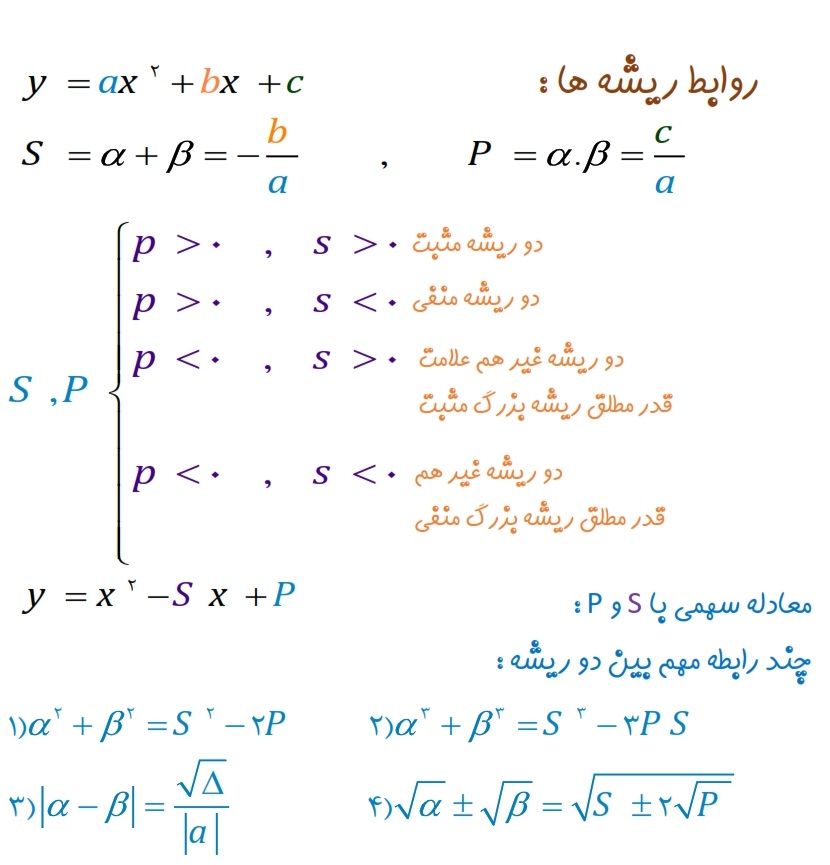 روابط ریشه ها :
y = ax² + bx + c
S = α + β = -b/a , P = α.β = c/a
S , P
p > ۰ , s > ۰ دو ریشه مثبت
p > ۰ , s < ۰ دو ریشه منفی
p < ۰ , s > ۰ دو ریشه غیر هم علامت
قدر مطلق ریشه بزرگ مثبت
p < ۰ , s < ۰ دو ریشه غیر هم
قدر مطلق ریشه بزرگ منفی
معادله سهمی با S و P :
y = x² - S x + P
چند رابطه مهم بین دو ریشه :
۱) α² + β² = S² - ۲P
۲) α³ + β³ = S³ - ۳P S
۳) |α - β| = √Δ / |a|
۴) √α ± √β = √(S ± ۲√P)